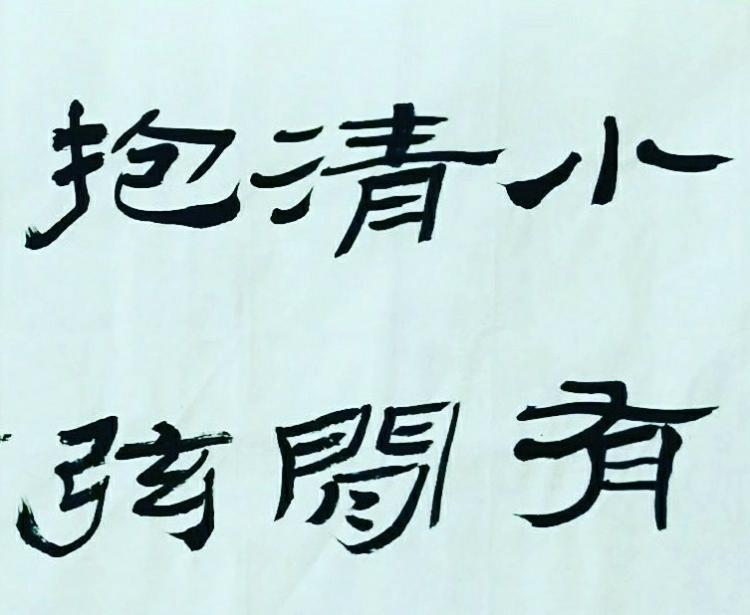 小有
清閒
抱弦